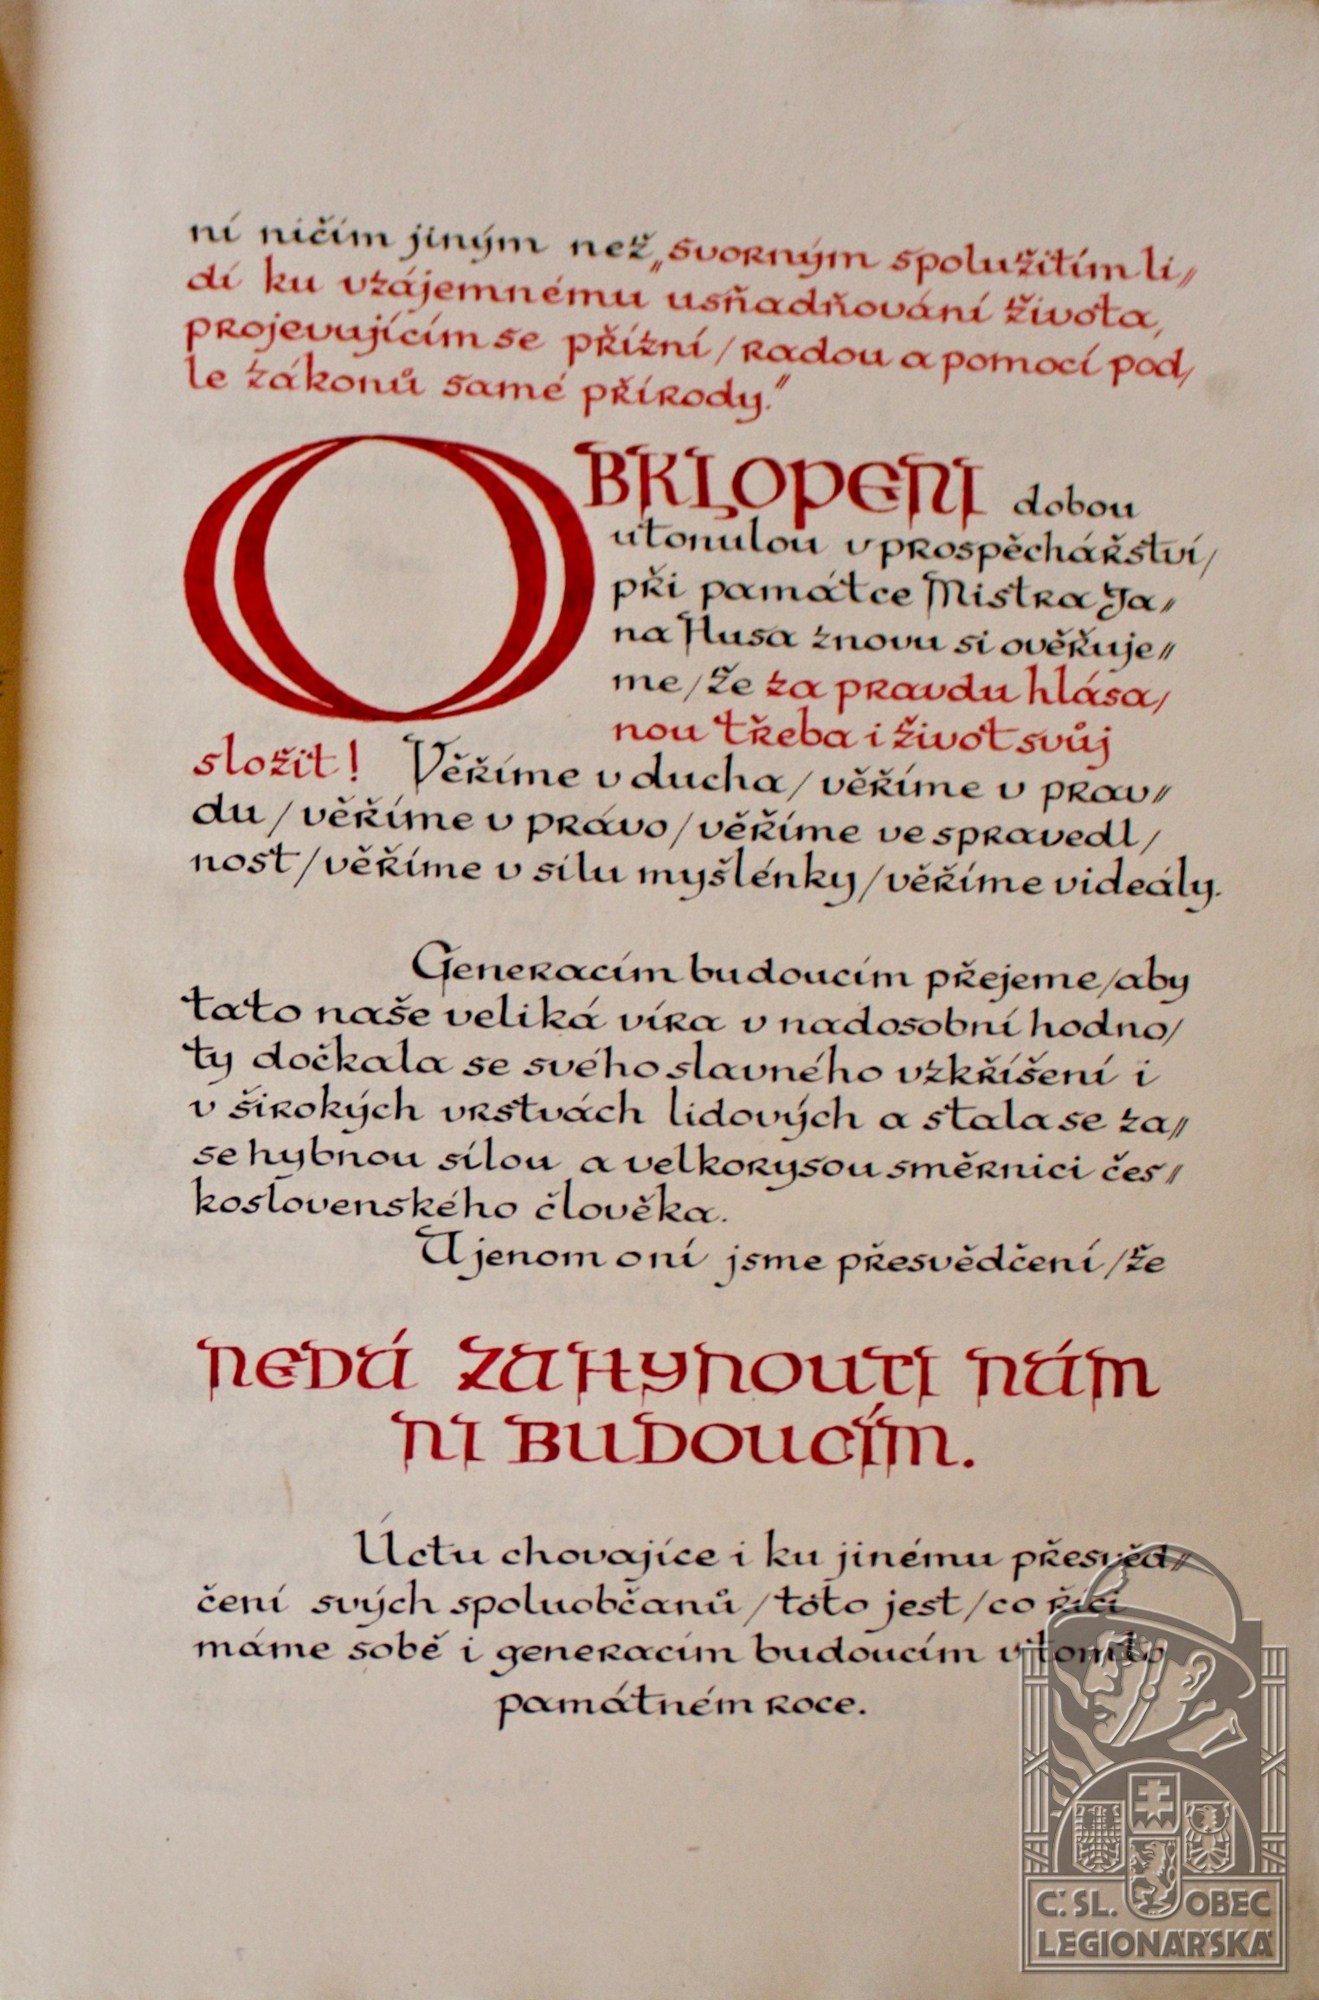 ní ničím jiným než „svorným spolužitím li〃
dí ku vzájemnému usňadňování života,
projevujícím se přížní/radou a pomocí pod/
le zákonů samé přírody.“
OBKLOPENI dobou
utonulou v prospěchářství/
při památce Mistra Ja〃
na Husa znovu si ověřuje〃
me/že za pravdu hlása/
nou třeba i život svůj
složit! Věříme v ducha/věříme v prav〃
du/věříme v právo/věříme ve spravedl/
nost/věříme v sílu myšlénky/věříme v ideály.
Generacím budoucím přejeme/aby
tato naše veliká víra v nadosobní hodno/
ty dočkala se svého slavného vzkříšení i
v širokých vrstvách lidových a stala se za〃
se hybnou sílou a velkorysou směrnicí čes〃
koslovenského člověka.
U jenom oní jsme přesvědčení/že
NEDÁ ZAHYNOUTI NÁM
NI BUDOUCÍM.
Úctu chovajíce i ku jinému přesvěd〃
čení svých spoluobčanů/toto jest/co říci
máme sobě i generacím budoucím v tomto
památném roce.
Č. SL. OBEC
LEGIONÁŘSKÁ